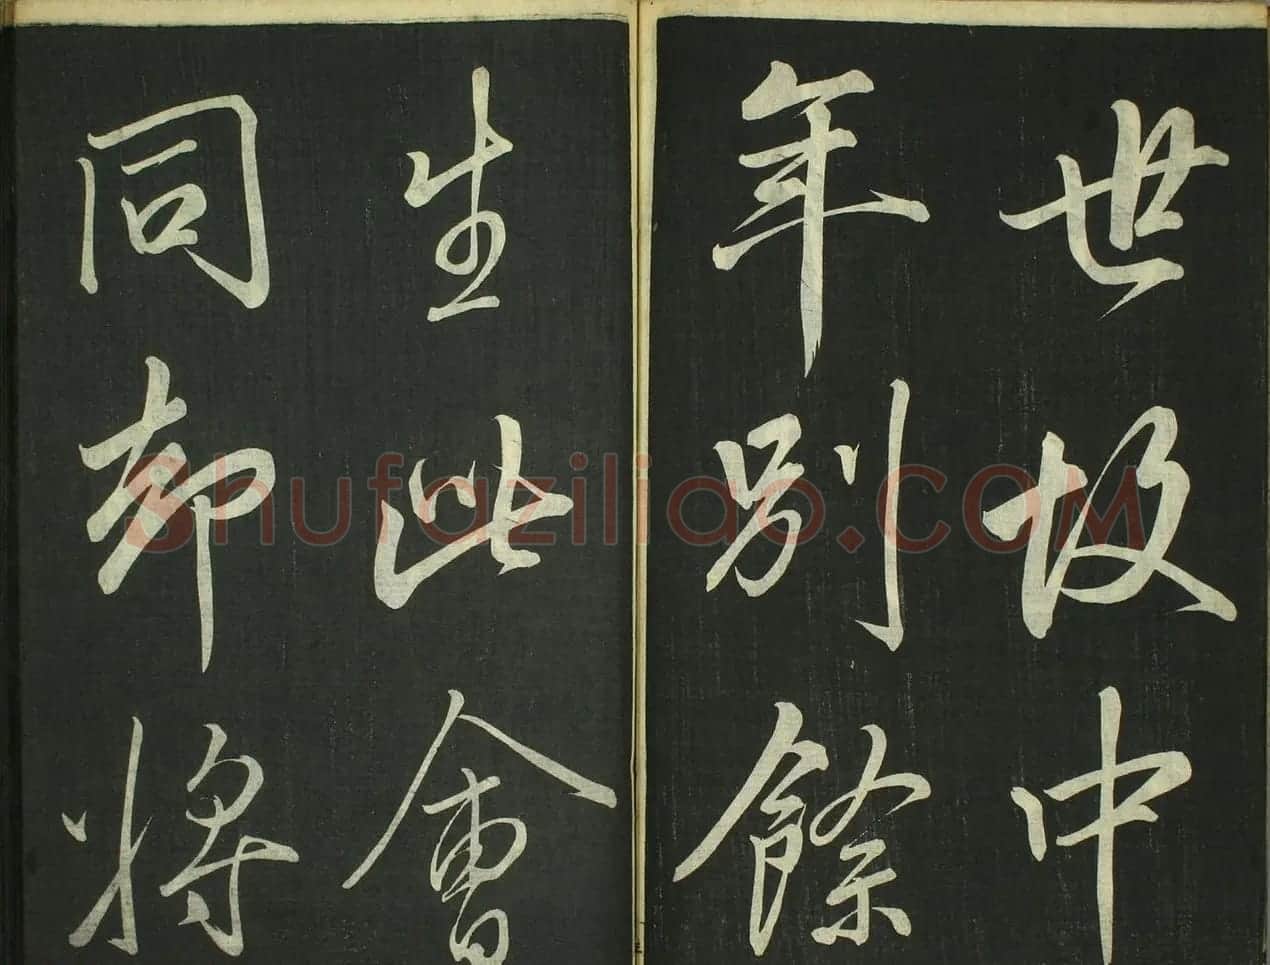 世故中
年別餘
生此會
同却將
Shufaziliao.COM